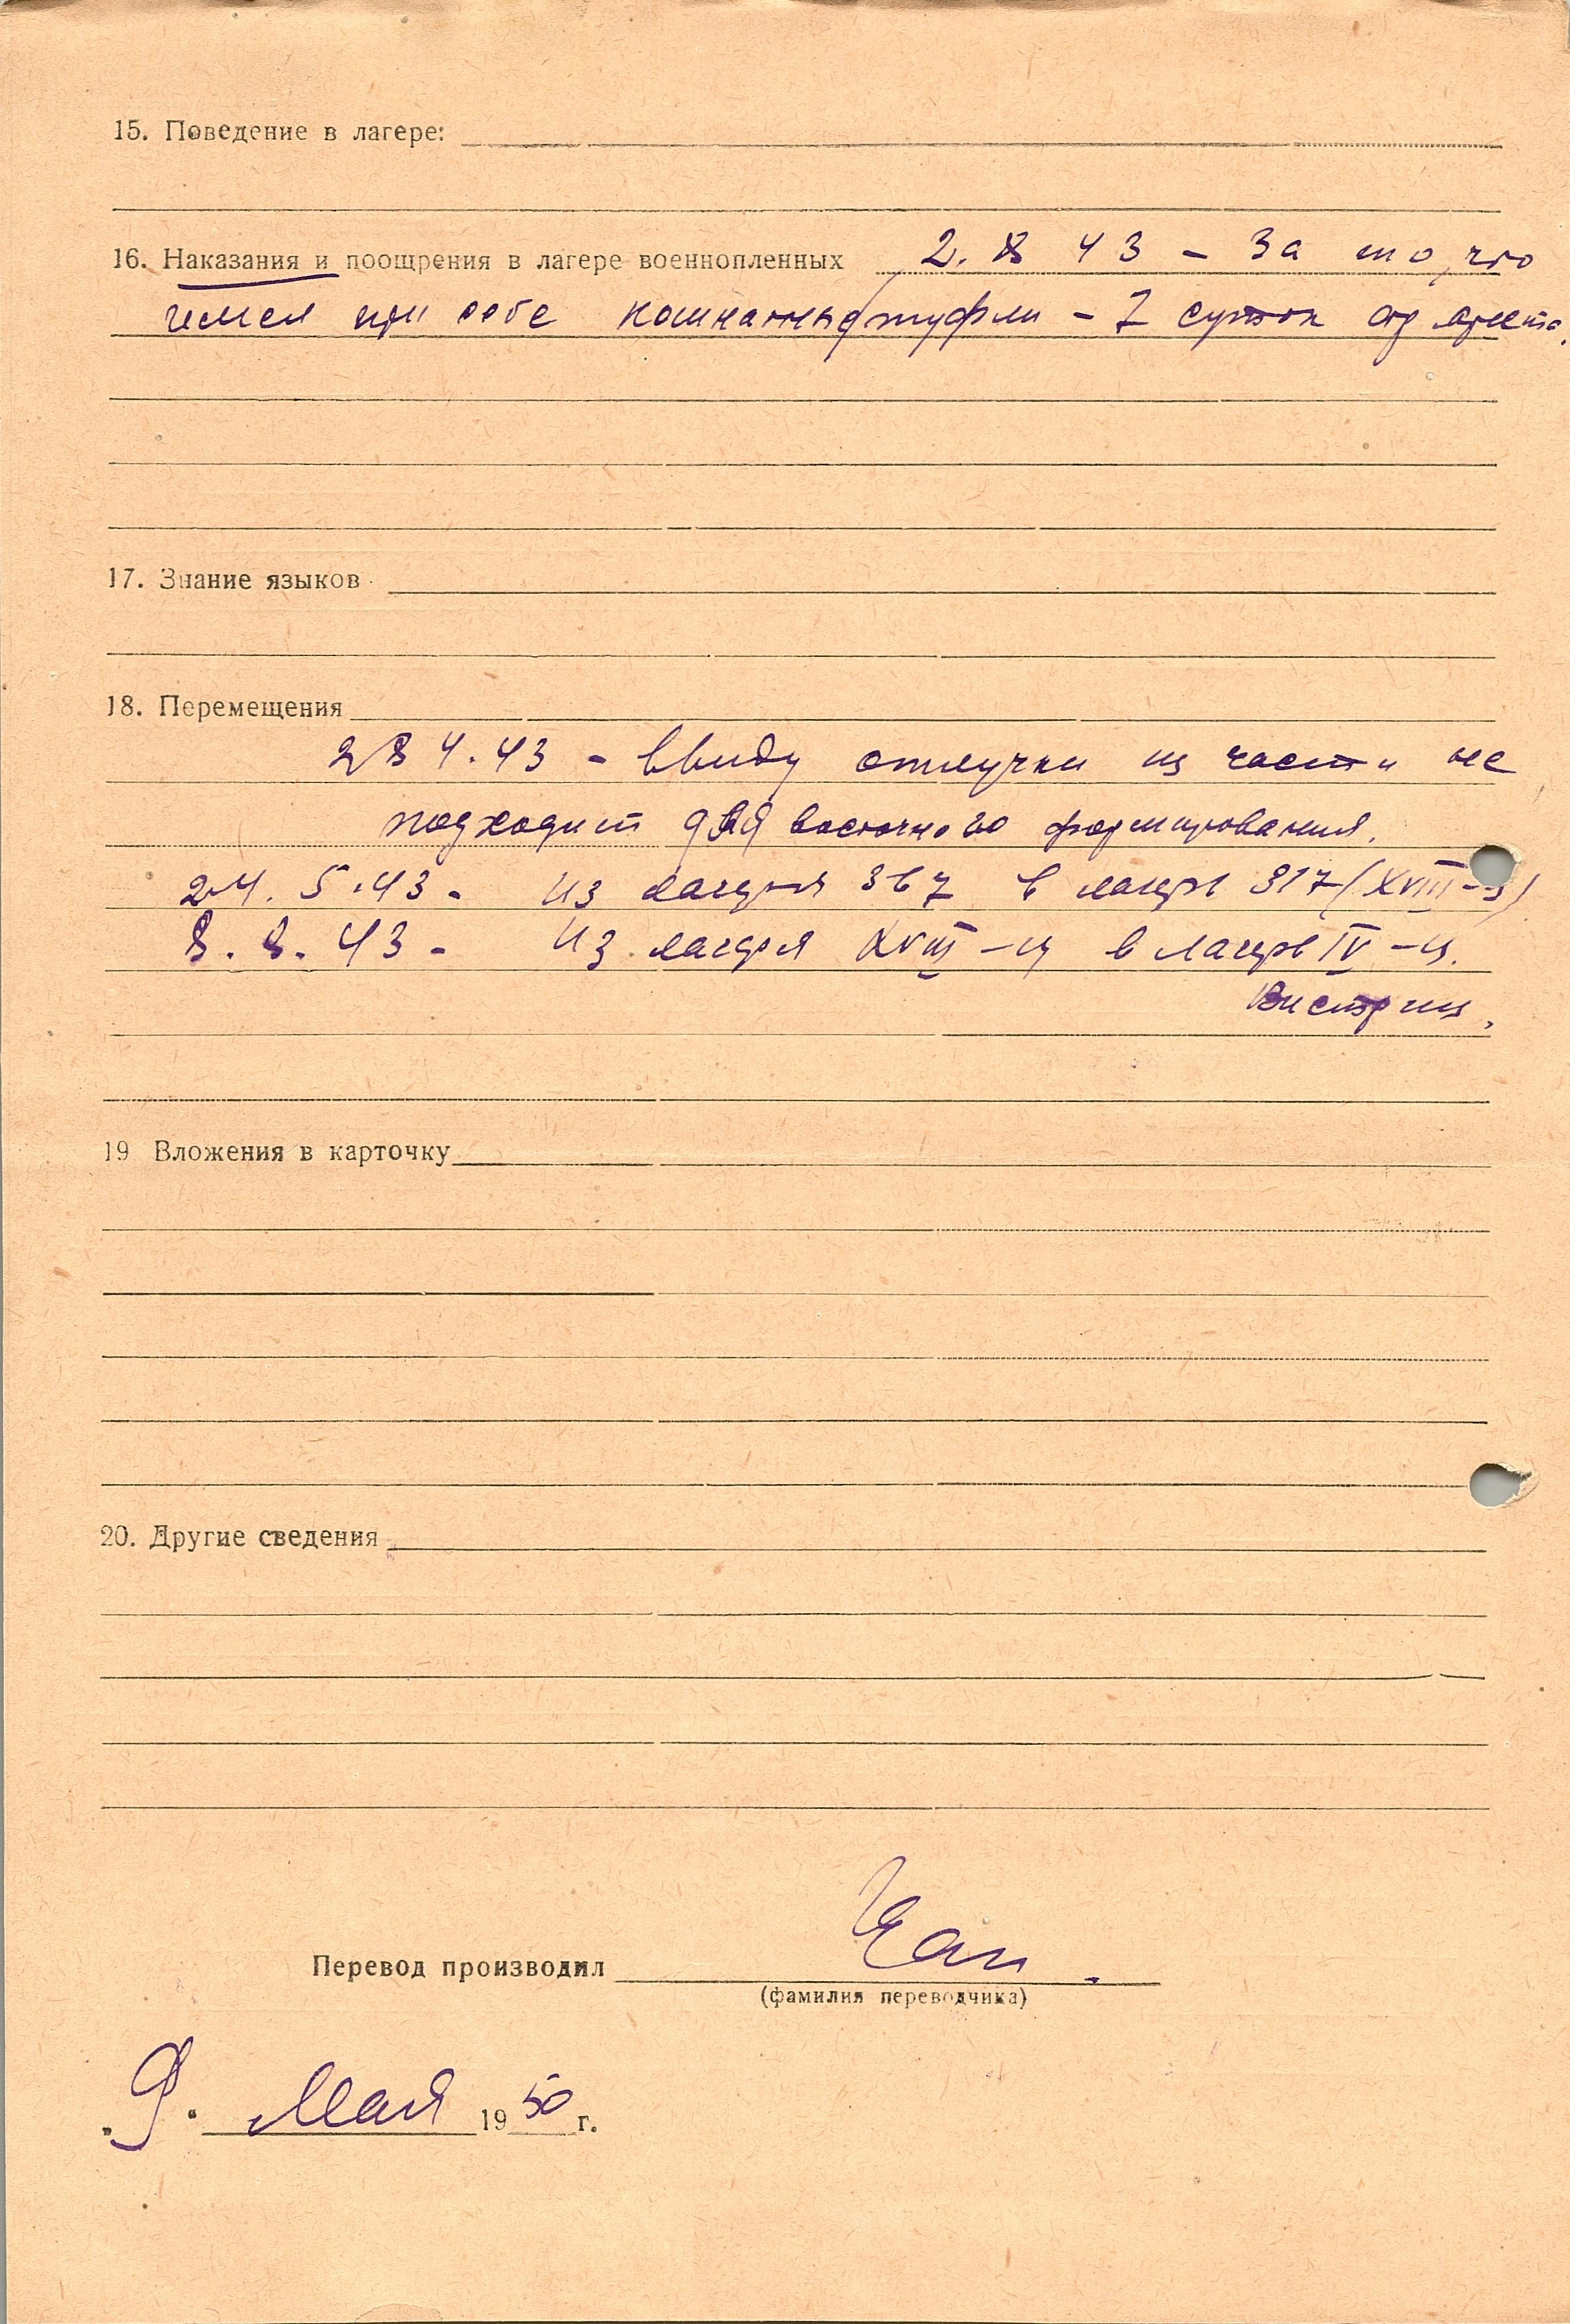 15. Поведение в лагере:
16. Наказания и поощрения в лагере военнопленных 2. 8 43 - За то, что
имел при себе комнатные туфли - 7 суток ареста.
17. Знание языков
18. Перемещения
28 4. 43 - ввиду отлучки из части не
подходит для восточного формирования.
24. 5. 43 - Из лагеря 367 в лагерь 317 (XVIII-ц)
8. 8. 43 - Из лагеря XVIII-ц в лагерь IV-ц.
Вистриц.
19 Вложения в карточку
20. Другие сведения
Перевод производил
(фамилия переводчика)
"9" Мая 1950 г.